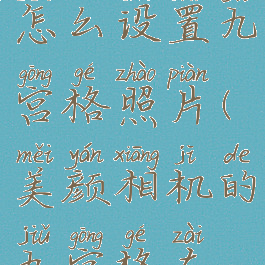 怎么设置九
gōng gé zhào piàn
宫格照片(
měi yán xiāng jī de
美颜相机的
jiǔ gōng gé zài
九宫格在